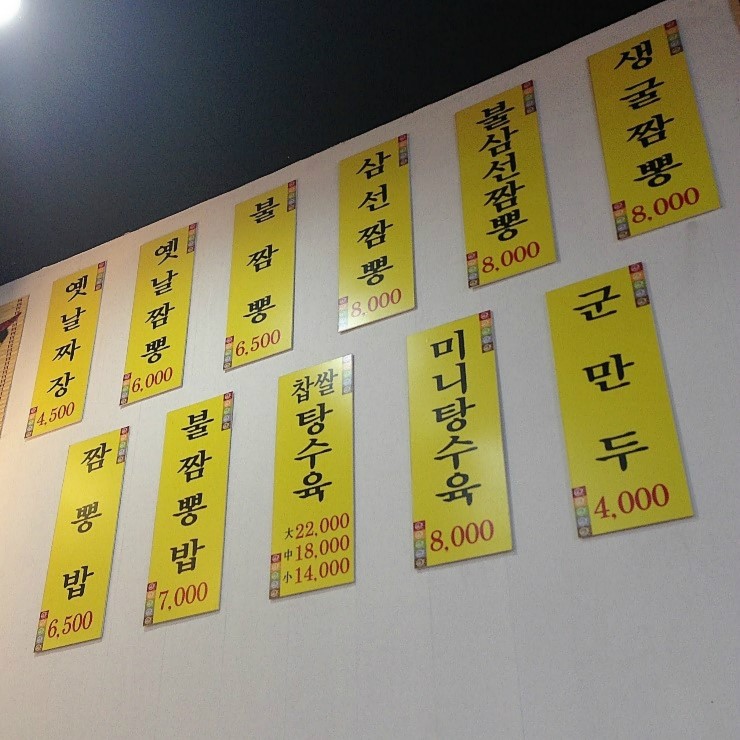 옛날짜장
4,500
옛날짬뽕
6,000
불짬뽕
6,500
삼선짬뽕
8,000
불삼선짬뽕
8,000
생굴짬뽕
8,000
짬뽕밥
6,500
불짬뽕밥
7,000
찹쌀탕수육
大 22,000
中 18,000
小 14,000
미니탕수육
8,000
군만두
4,000